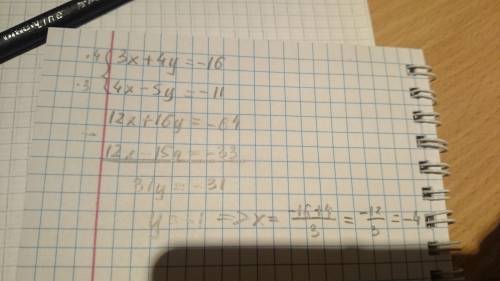 ·4 { 3x+4y=-16
·3 { 4x-5y=-11
12x+16y=-64
-
12x-15y=-33
31y=-31
y=-1 => x= \frac{-16+4}{3} = \frac{-12}{3} =-4